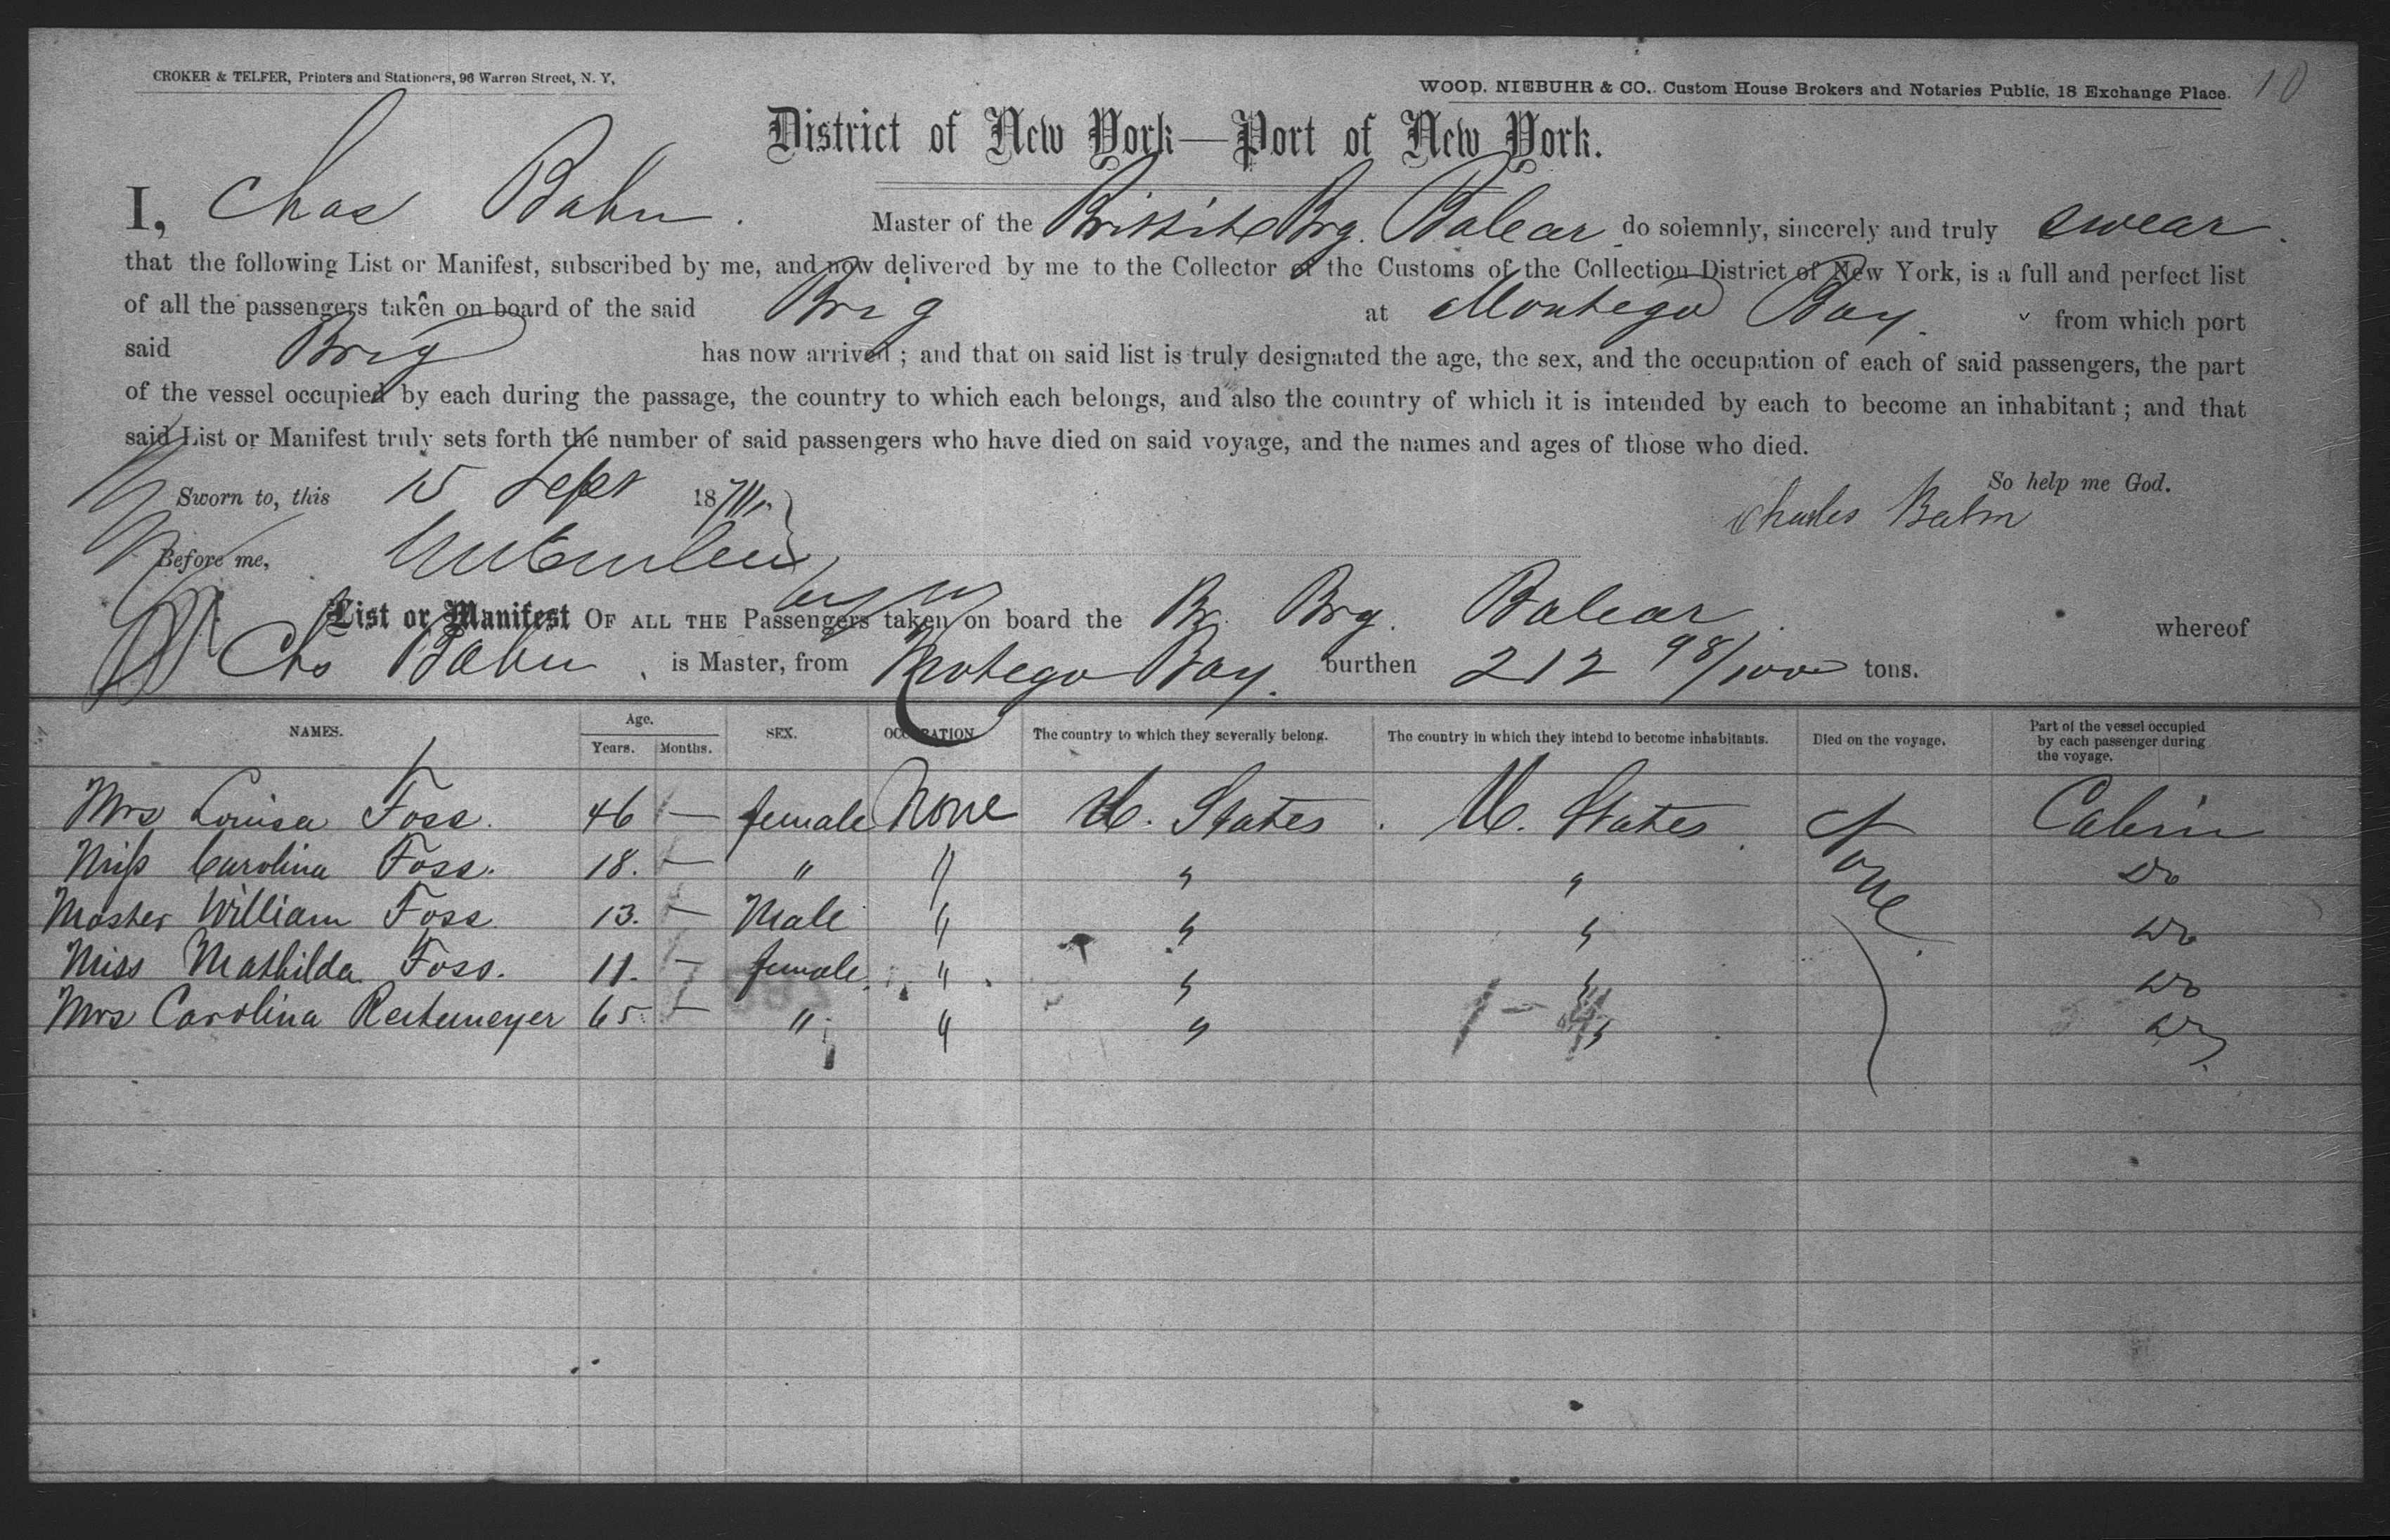 CROKER & TELFER, Printers and Stationers, 96 Warren Street, N. Y.
WOOD, NIEBUHR & CO., Custom House Brokers and Notaries Public, 18 Exchange Place. 10
District of New York—Port of New York.
I, Chas Bahn. Master of the British Brg. Balear do solemnly, sincerely and truly swear.
that the following List or Manifest, subscribed by me, and now delivered by me to the Collector of the Customs of the Collection District of New York, is a full and perfect list
of all the passengers taken on board of the said Brig at Montego Bay. from which port
said Brig has now arrived; and that on said list is truly designated the age, the sex, and the occupation of each of said passengers, the part
of the vessel occupied by each during the passage, the country to which each belongs, and also the country of which it is intended by each to become an inhabitant; and that
said List or Manifest truly sets forth the number of said passengers who have died on said voyage, and the names and ages of those who died.
So help me God.
Sworn to, this 15 Sept 187
Charles Bahn
Before me,
List or Manifest OF ALL THE Passengers taken on board the Br. Brg. Balear. whereof
Chs Bahn. is Master, from Motego Bay. burthen 212 98/100 tons.
NAMES. Age. Years. Months. SEX. OCCUPATION The country to which they severally belong. The country in which they intend to become inhabitants. Died on the voyage. Part of the vessel occupied by each passenger during the voyage.
Mrs Louisa Foss. 46 — female None U. States. U. States. None Cabin
Miss Carolina Foss. 18. — " " " " Do
Master William Foss 13. — Male " " " Do
Miss Mathilda Foss. 11. — female " " " Do
Mrs Carolina Reitemeyer 65 — " " " " Do